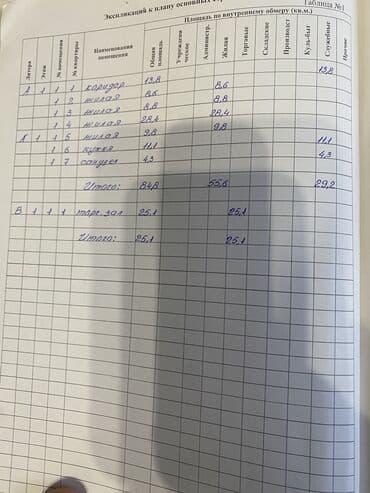 Таблица №1
Экспликаций к плану основных
Площадь по внутреннему обмеру (кв.м.)
Литера Этаж № помещения № квартиры Наименования помещения Общая площадь Учрежденческое Администр. Жилая Торговые Складские Производст Куль-быт Служебные Прочие
А 1 1 1 коридор 13,8 13,8
1 2 жилая 8,6 8,6
1 3 жилая 8,8 8,8
1 4 жилая 28,4 28,4
1 1 5 жилая 9,8 9,8
1 6 кухня 11,1 11,1
1 7 санузел 4,3 4,3
Итого: 84,8 55,6 29,2
В 1 1 1 торг. зал 25,1 25,1
Итого: 25,1 25,1